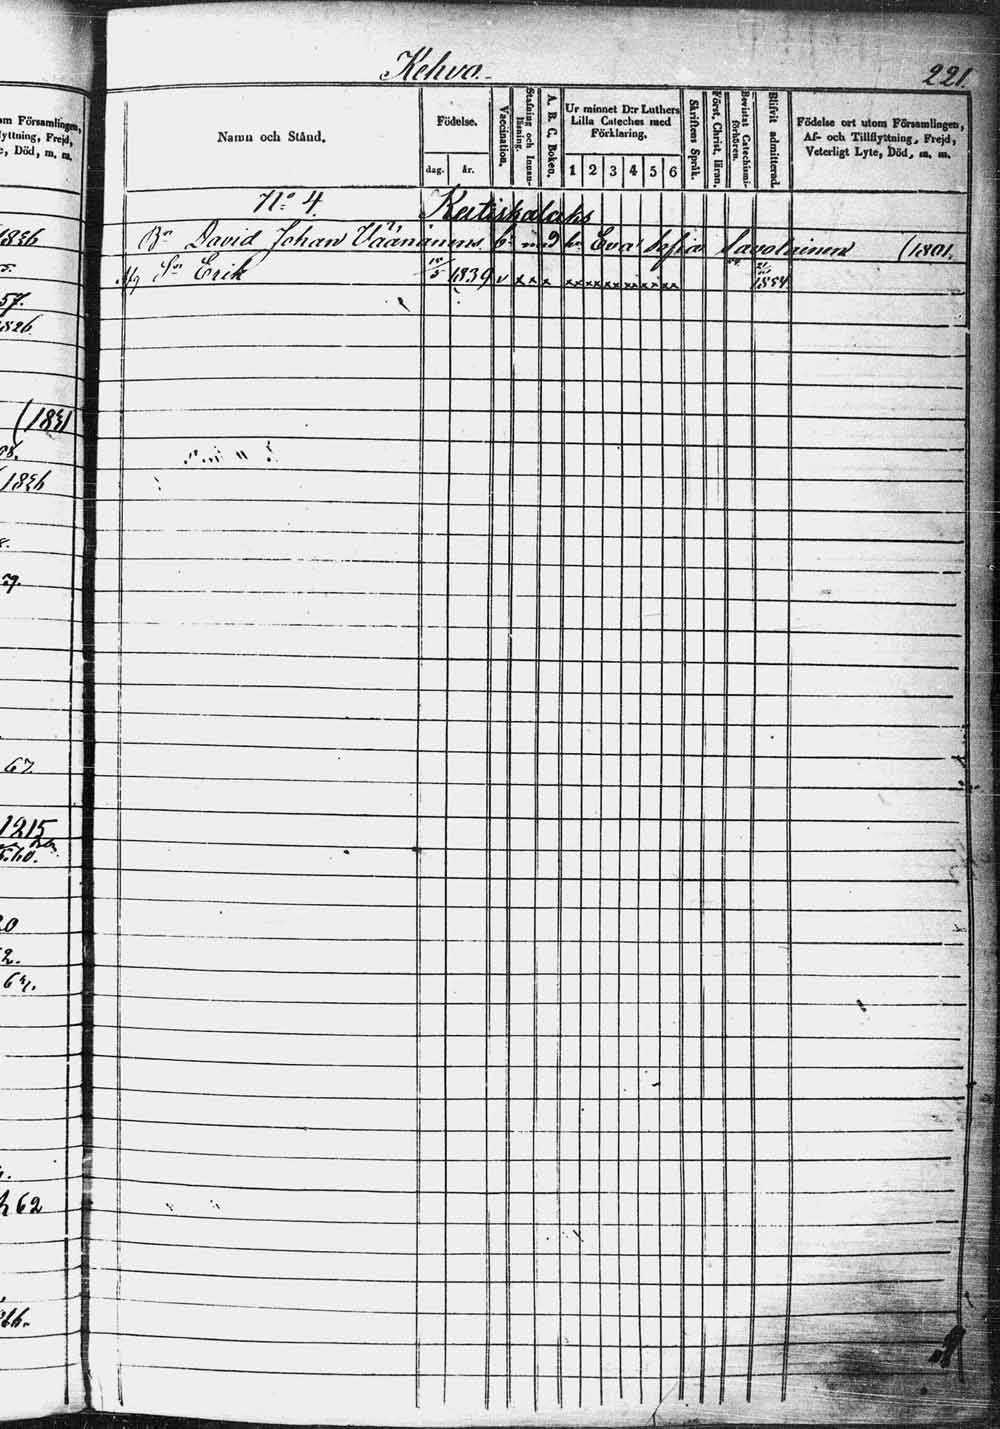 Kehvo.
221.
om Församlingen,
lyttning, Frejd,
Död, m. m.
1836
57.
1826.
(1831
1836
67.
1215
20
2.
62
Namn och Stånd.
Födelse.
dag. år.
Vaccination.
Stafning och Innanläsning.
A. B. C. Boken.
Ur minnet D:r Luthers Lilla Cateches med Förklaring.
1 2 3 4 5 6
Skriftens Språk.
Först. Christ. läran.
Bevistat Catechismiförhören.
Blifvit admitterad.
Födelse ort utom Församlingen, Af- och Tillflyttning, Frejd, Veterligt Lyte, Död, m. m.
No 4. Kutiskalaks
Bn David Johan Väänänens b. med h. Eva Sofia Savolainen (1801.
Sn Erik 10/5 1839 v x x x xx xx xx xx xx xx 1854